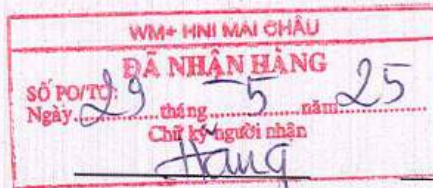 WM+ HNI MAI CHÂU
ĐÃ NHẬN HÀNG
SỐ PO/TO:
Ngày 29 tháng 5 năm 25
Chữ ký người nhận
Hằng